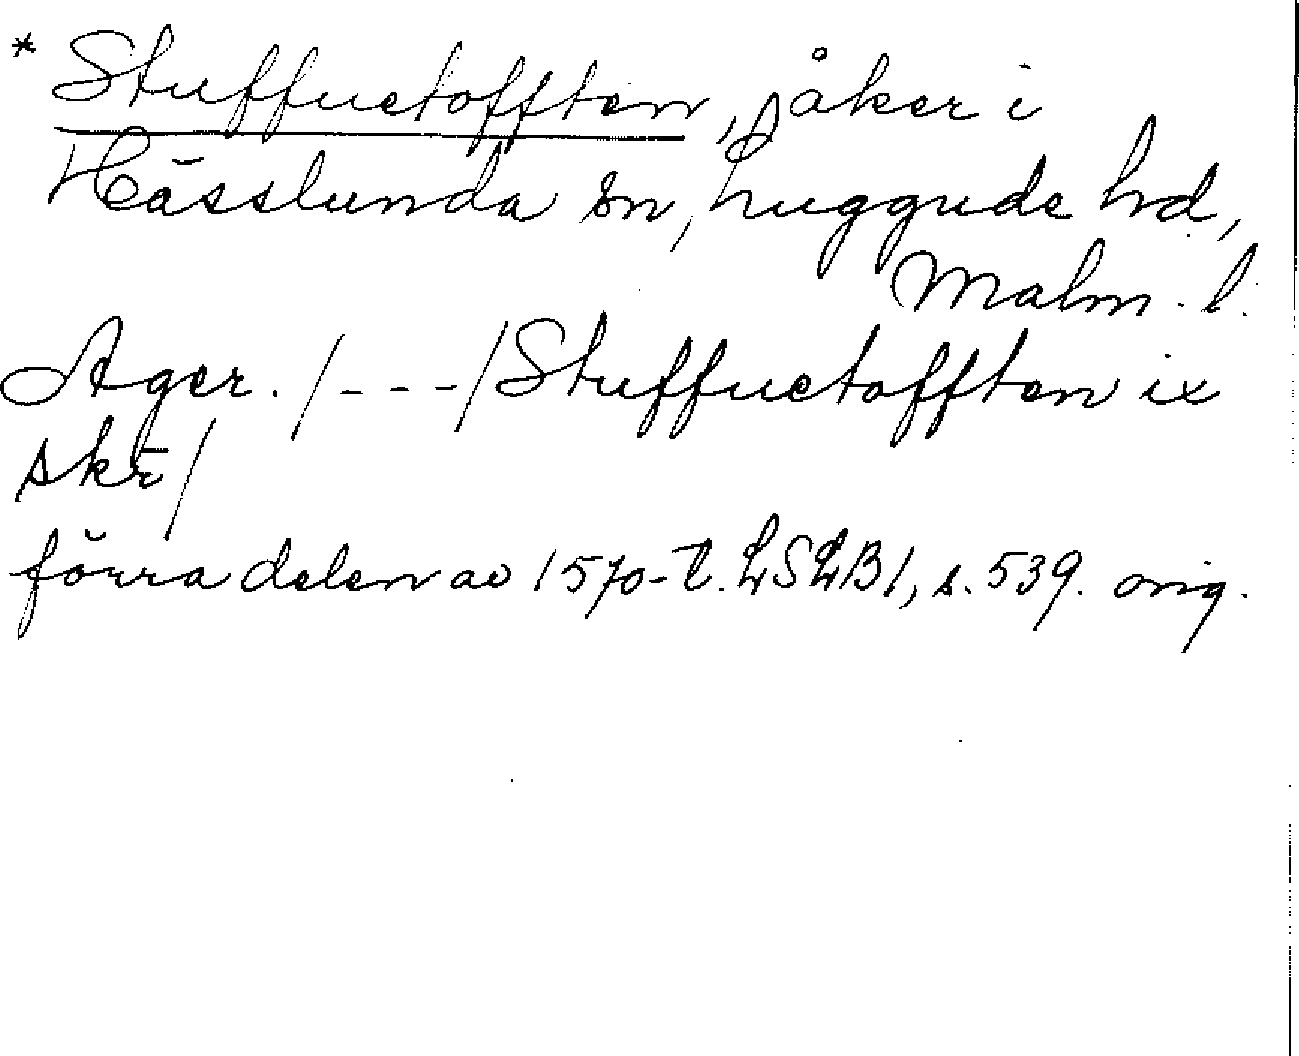 * Stuffuetofften, åker i
Hässlunda sn, Luggude hd,
Malm. l.
Ager. /- - -/ Stuffuetofften ix
skr̄/
förra delen av 1570-t. LSLB1, s. 539. orig.